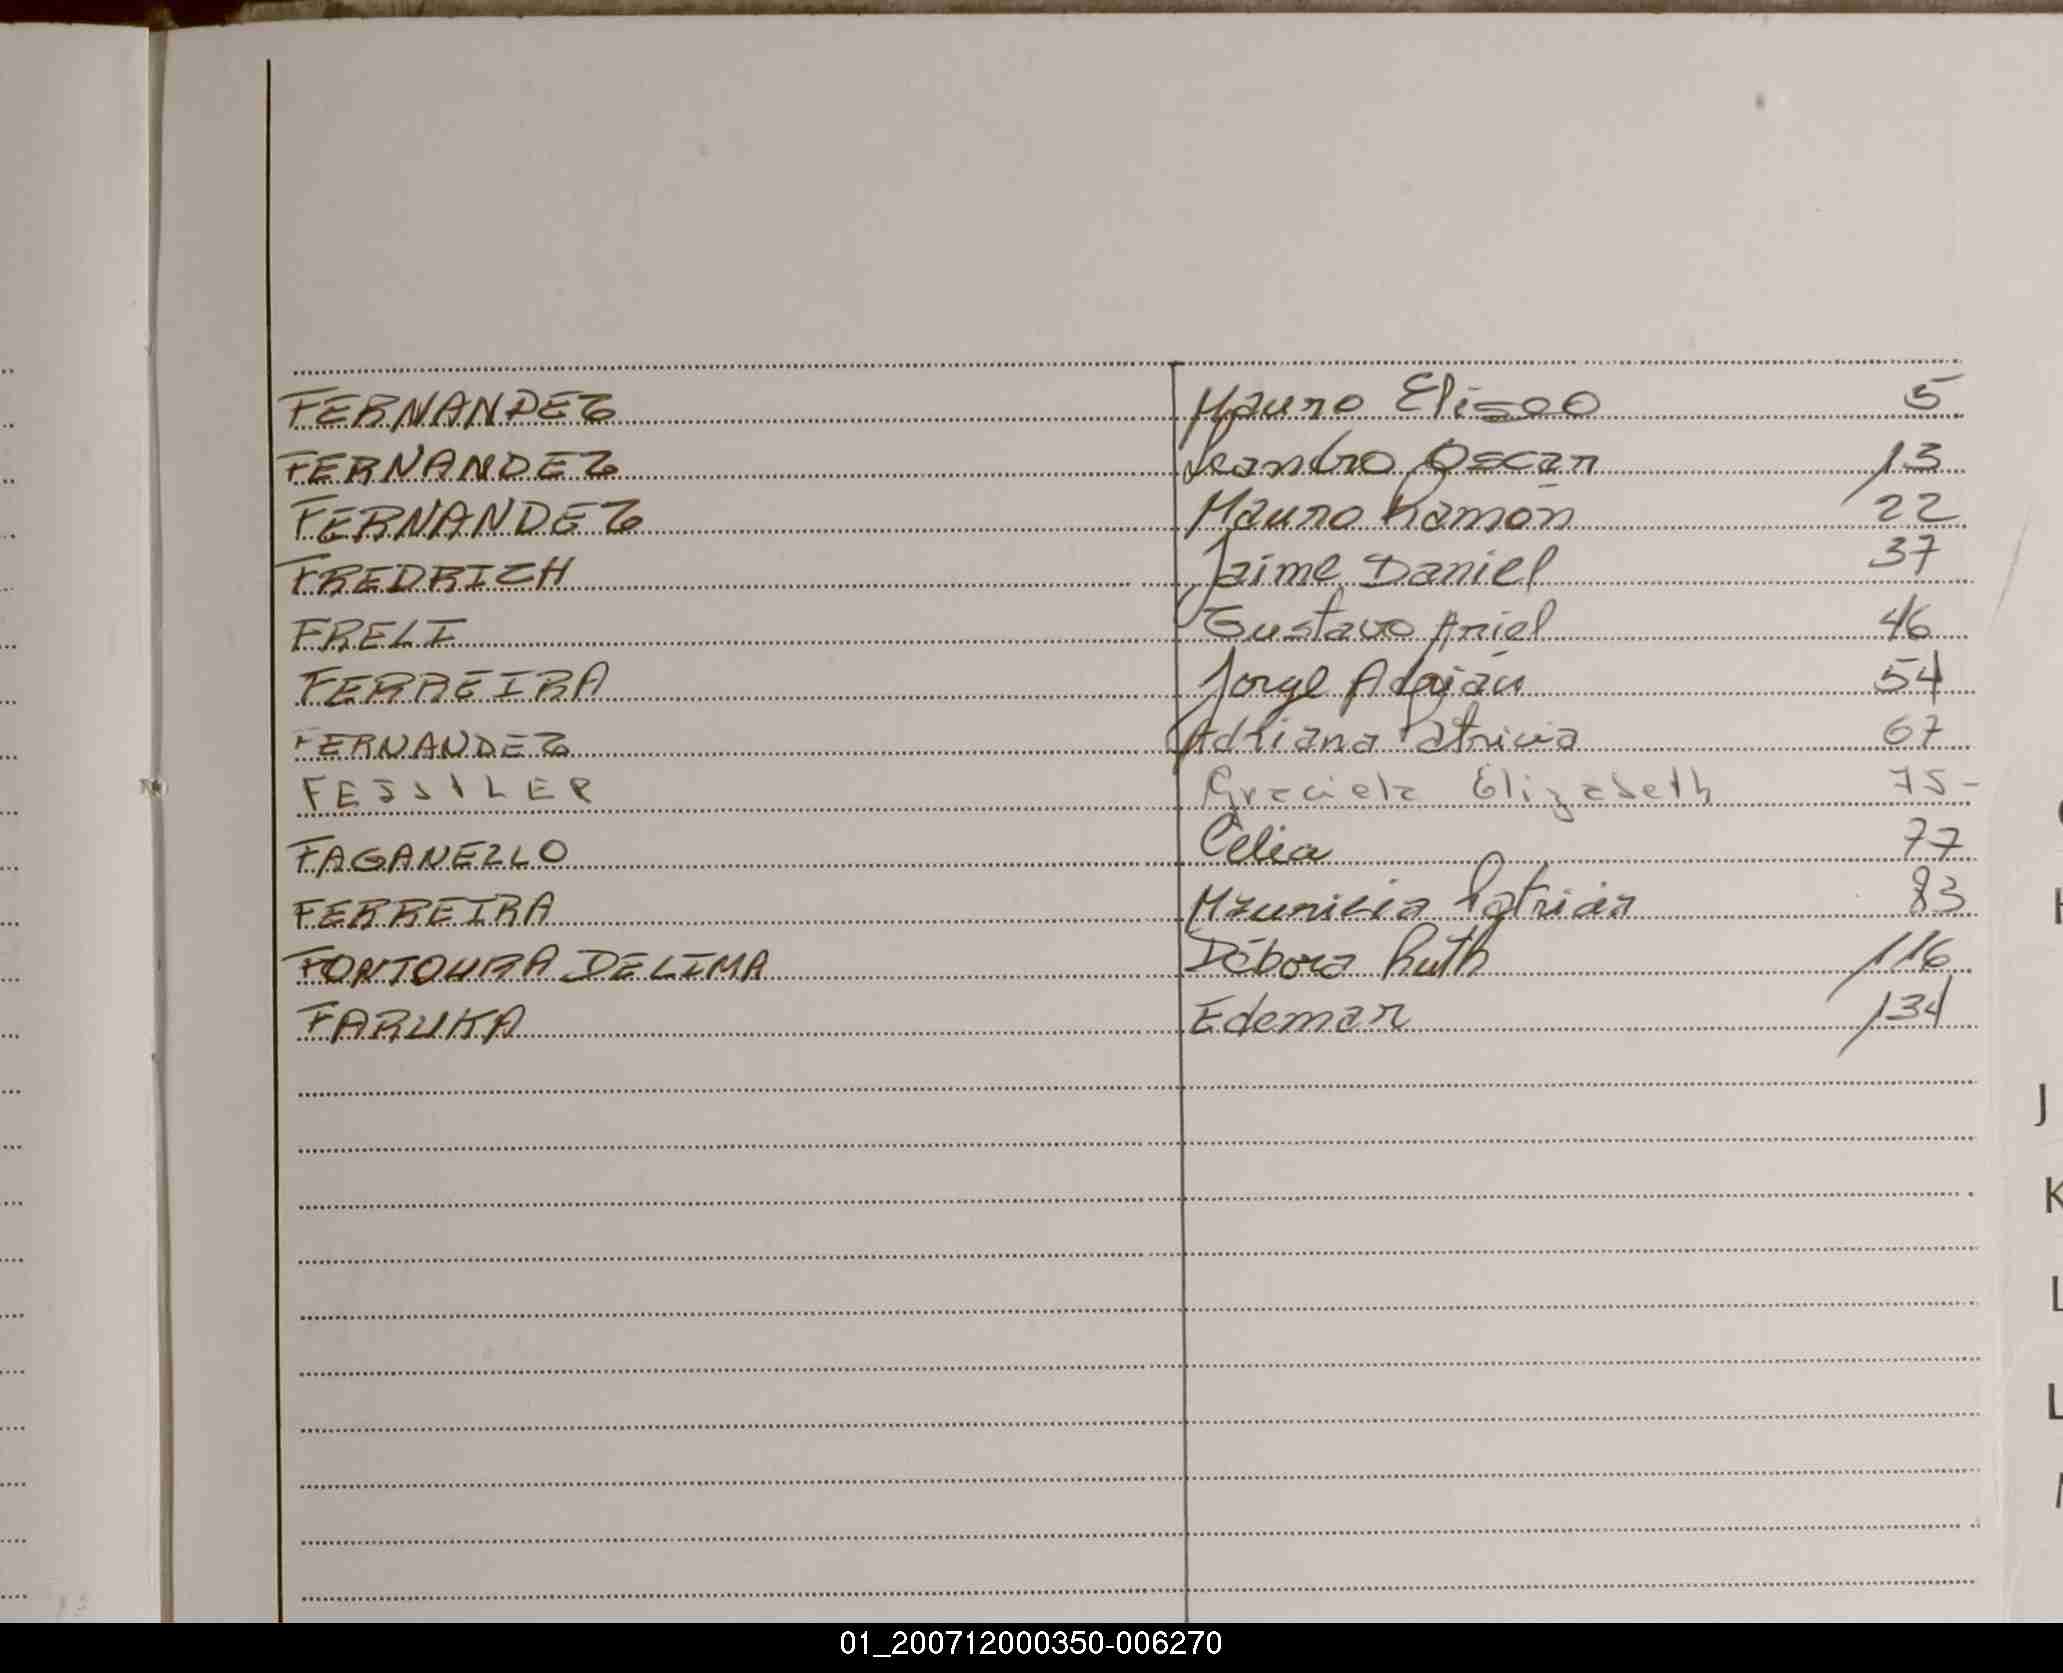 FERNANDEZ Mauro Eliseo 5
FERNANDEZ Leandro Oscar 13
FERNANDEZ Mauro Ramón 22
FREDRICH Jaime Daniel 37
FRELI Gustavo Ariel 46
FERREIRA Jorge Adrián 54
FERNANDEZ Adriana Patricia 67
FESSILER Graciela Elizabeth 75-
FAGANELLO Celia 77
FERREIRA Mauricia Patricia 83
FONTOURA DE LIMA Débora Ruth 116
FARUKA Edemar 134
J
K
L
L
01_200712000350-006270